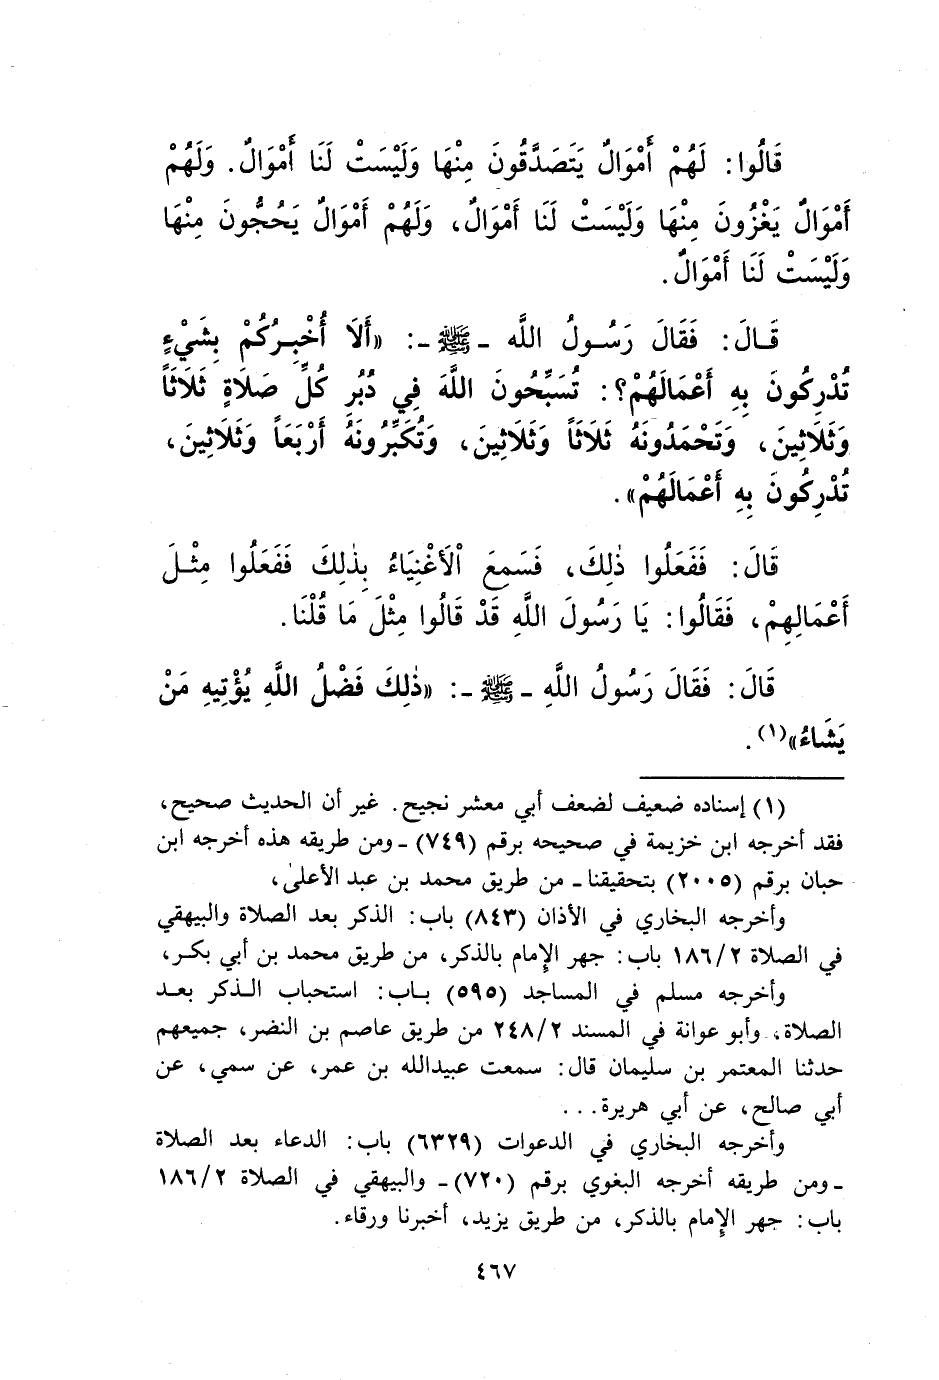 قَالُوا: لَهُمْ أَمْوَالٌ يَتَصَدَّقُونَ مِنْهَا وَلَيْسَتْ لَنَا أَمْوَالٌ. وَلَهُمْ
أَمْوَالٌ يَغْزُونَ مِنْهَا وَلَيْسَتْ لَنَا أَمْوَالٌ، وَلَهُمْ أَمْوَالٌ يَحُجُّونَ مِنْهَا
وَلَيْسَتْ لَنَا أَمْوَالٌ.
قَـالَ: فَقَالَ رَسُـولُ اللَّه ـ ﷺ ـ: «أَلَا أُخْبِـرُكُمْ بِشَيْءٍ
تُدْرِكُونَ بِهِ أَعْمَالَهُمْ؟: تُسَبِّحُونَ اللَّهَ فِي دُبُرِ كُلِّ صَلَاةٍ ثَلَاثَاً
وَثَلَاثِينَ، وَتَحْمَدُونَهُ ثَلَاثَاً وَثَلَاثِينَ، وَتُكَبِّرُونَهُ أَرْبَعَاً وَثَلَاثِينَ،
تُدْرِكُونَ بِهِ أَعْمَالَهُمْ».
قَالَ: فَفَعَلُوا ذٰلِكَ، فَسَمِعَ اْلأَغْنِيَاءُ بِذٰلِكَ فَفَعَلُوا مِثْـلَ
أَعْمَالِهِمْ، فَقَالُوا: يَا رَسُولَ اللَّهِ قَدْ قَالُوا مِثْلَ مَا قُلْنَا.
قَالَ: فَقَالَ رَسُولُ اللَّهِ ـ ﷺ ـ: «ذٰلِكَ فَضْلُ اللَّهِ يُؤْتِيهِ مَنْ
يَشَاءُ»(١).
(١) إسناده ضعيف لضعف أبي معشر نجيح. غير أن الحديث صحيح،
فقد أخرجه ابن خزيمة في صحيحه برقم (٧٤٩) ـ ومن طريقه هذه أخرجه ابن
حبان برقم (٢٠٠٥) بتحقيقنا ـ من طريق محمد بن عبد الأعلىٰ،
وأخرجه البخاري في الأذان (٨٤٣) باب: الذكر بعد الصلاة والبيهقي
في الصلاة ١٨٦/٢ باب: جهر الإمام بالذكر، من طريق محمد بن أبي بكـر،
وأخرجه مسلم في المساجد (٥٩٥) بـاب: استحباب الـذكر بعـد
الصلاة، وأبو عوانة في المسند ٢٤٨/٢ من طريق عاصم بن النضر، جميعهم
حدثنا المعتمر بن سليمان قال: سمعت عبيدالله بن عمر، عن سمي، عن
أبي صالح، عن أبي هريرة...
وأخرجه البخاري في الدعوات (٦٣٢٩) باب: الدعاء بعد الصلاة
ـ ومن طريقه أخرجه البغوي برقم (٧٢٠) ـ والبيهقي في الصلاة ١٨٦/٢
باب: جهر الإمام بالذكر، من طريق يزيد، أخبرنا ورقاء.
٤٦٧